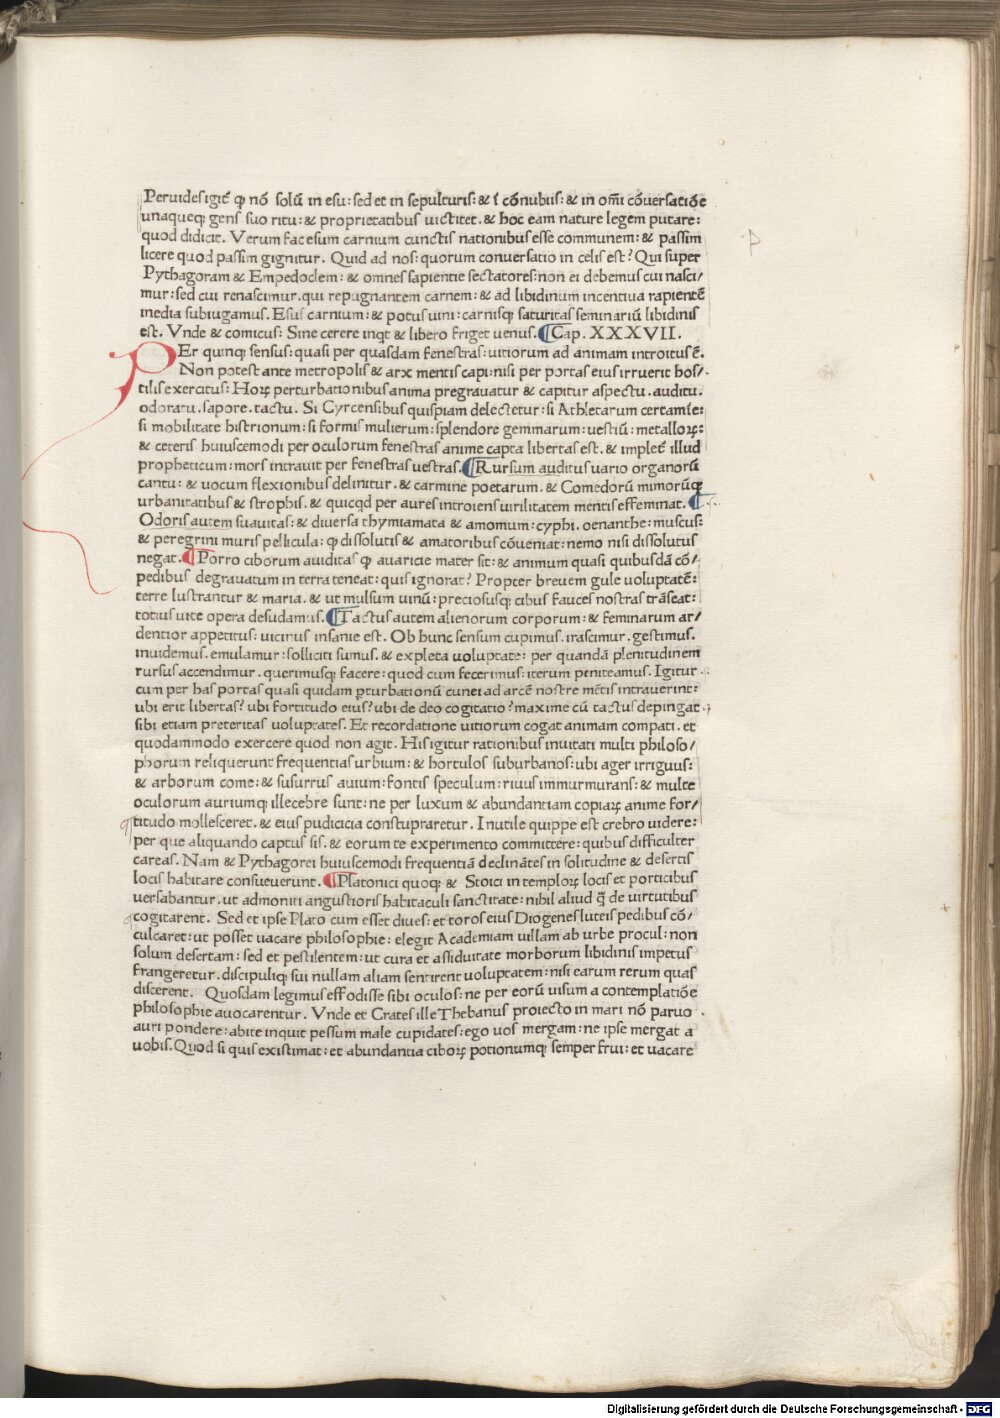 Peruides igit̃ ꝙ nõ solũ in esu: sed et in sepulturis: & ĩ cõnubiis: & in om̃i cõuersatiõe
unaqueq; gens suo ritu: & proprietatibus uictitet. & hoc eam nature legem putare:
quod didicit. Verum fac esum carnium cunctis nationibus esse communem: & passim
licere quod passim gignitur. Quid ad nos: quorum conuersatio in celis est? Qui super
Pythagoram & Empedoclem: & omnes sapientie sectatores: non ei debemus cui nasci/
mur: sed cui renascimur. qui repugnantem carnem: & ad libidinum incentiua rapientẽ
inedia subiugamus. Esus carnium: & potus uini: carnisq; saturitas seminariũ libidinis
est. Vnde & comicus: Sine cerere inqt & libero friget uenus. ¶Cap. XXXVII.
PEr quinq; sensus: quasi per quasdam fenestras: uitiorum ad animam introitus ẽ.
Non potest ante metropolis & arx mentis capi: nisi per portas eius irruerit hos/
tilis exercitus: Hoꝝ perturbationibus anima pregrauatur & capitur aspectu. auditu.
odoratu. sapore. tactu. Si Cyrcensibus quispiam delectetur: si Athletarum certamĩe:
si mobilitate histrionum: si formis mulierum: splendore gemmarum: uestiũ: metalloꝝ:
& ceteris huiuscemodi per oculorum fenestras anime capta libertas est. & implet̃ illud
propheticum: mors intrauit per fenestras uestras. ¶Rursum auditus uario organorũ
cantu: & uocum flexionibus delinitur. & carmine poetarum. & Comedorũ mimorũq;
urbanitatibus & strophis. & quicqd per aures introiens uirilitatem mentis effeminat. ¶
Odoris autem suauitas: & diuersa thymiamata & amomum: cyphi. oenanthe: muscus:
& peregrini muris pellicula: ꝙ dissolutis & amatoribus cõueniat: nemo nisi dissolutus
negat. ¶Porro ciborum auiditas ꝙ auaricie mater sit: & animum quasi quibusdã cõ/
pedibus degrauatum in terra teneat: quis ignorat? Propter breuem gule uoluptatẽ:
terre lustrantur & maria. & ut mulsum uinũ: preciosusq; cibus fauces nostras trãseat:
totius uite opera desudamus. ¶Tactus autem alienorum corporum: & feminarum ar/
dentior appetitus: uicinus insanie est. Ob hunc sensum cupimus. irascimur. gestimus.
inuidemus. emulamur: solliciti sumus. & expleta uoluptate: per quandã plenitudinem
rursus accendimur. querimusq; facere: quod cum fecerimus: iterum peniteamus. Igitur
cum per has portas quasi quidam ꝑturbationũ cunei ad arcẽ nostre mẽtis intrauerint:
ubi erit libertas? ubi fortitudo eius? ubi de deo cogitatio? maxime cũ tactus depingat
sibi etiam preteritas uoluptates. Et recordatione uitiorum cogat animam compati. et
quodammodo exercere quod non agit. His igitur rationibus inuitati multi philoso/
phorum reliquerunt frequentias urbium: & hortulos suburbanos: ubi ager irriguus:
& arborum come: & susurrus auium: fontis speculum: riuus immurmurans: & multe
oculorum auriumq; illecebre sunt: ne per luxum & abundantiam copiaꝝ anime for/
titudo mollesceret. & eius pudicicia constupraretur. Inutile quippe est crebro uidere:
per que aliquando captus sis. & eorum te experimento committere: quibus difficulter
careas. Nam & Pythagorei huiuscemodi frequentiã declinãtes in solitudine & desertis
locis habitare consueuerunt. ¶Platonici quoq; & Stoici in temploꝝ locis et porticibus
uersabantur. ut admoniti angustioris habitaculi sanctitate: nihil aliud q̃ de uirtutibus
cogitarent. Sed et ipse Plato cum esset diues: et toros eius Diogenes luteis pedibus cõ/
culcaret: ut posset uacare philosophie: elegit Academiam uillam ab urbe procul: non
solum desertam: sed et pestilentem: ut cura et assiduitate morborum libidinis impetus
frangeretur. discipuliq; sui nullam aliam sentirent uoluptatem: nisi earum rerum quas
discerent. Quosdam legimus effodisse sibi oculos: ne per eorũ uisum a contemplatiõe
philosophie auocarentur. Vnde et Crates ille Thebanus proiecto in mari nõ paruo
auri pondere: abite inquit pessum male cupidates: ego uos mergam: ne ipse mergat a
uobis. Quod si quis existimat: et abundantia ciboꝝ potionumq; semper frui: et uacare
Digitalisierung gefördert durch die Deutsche Forschungsgemeinschaft - DFG